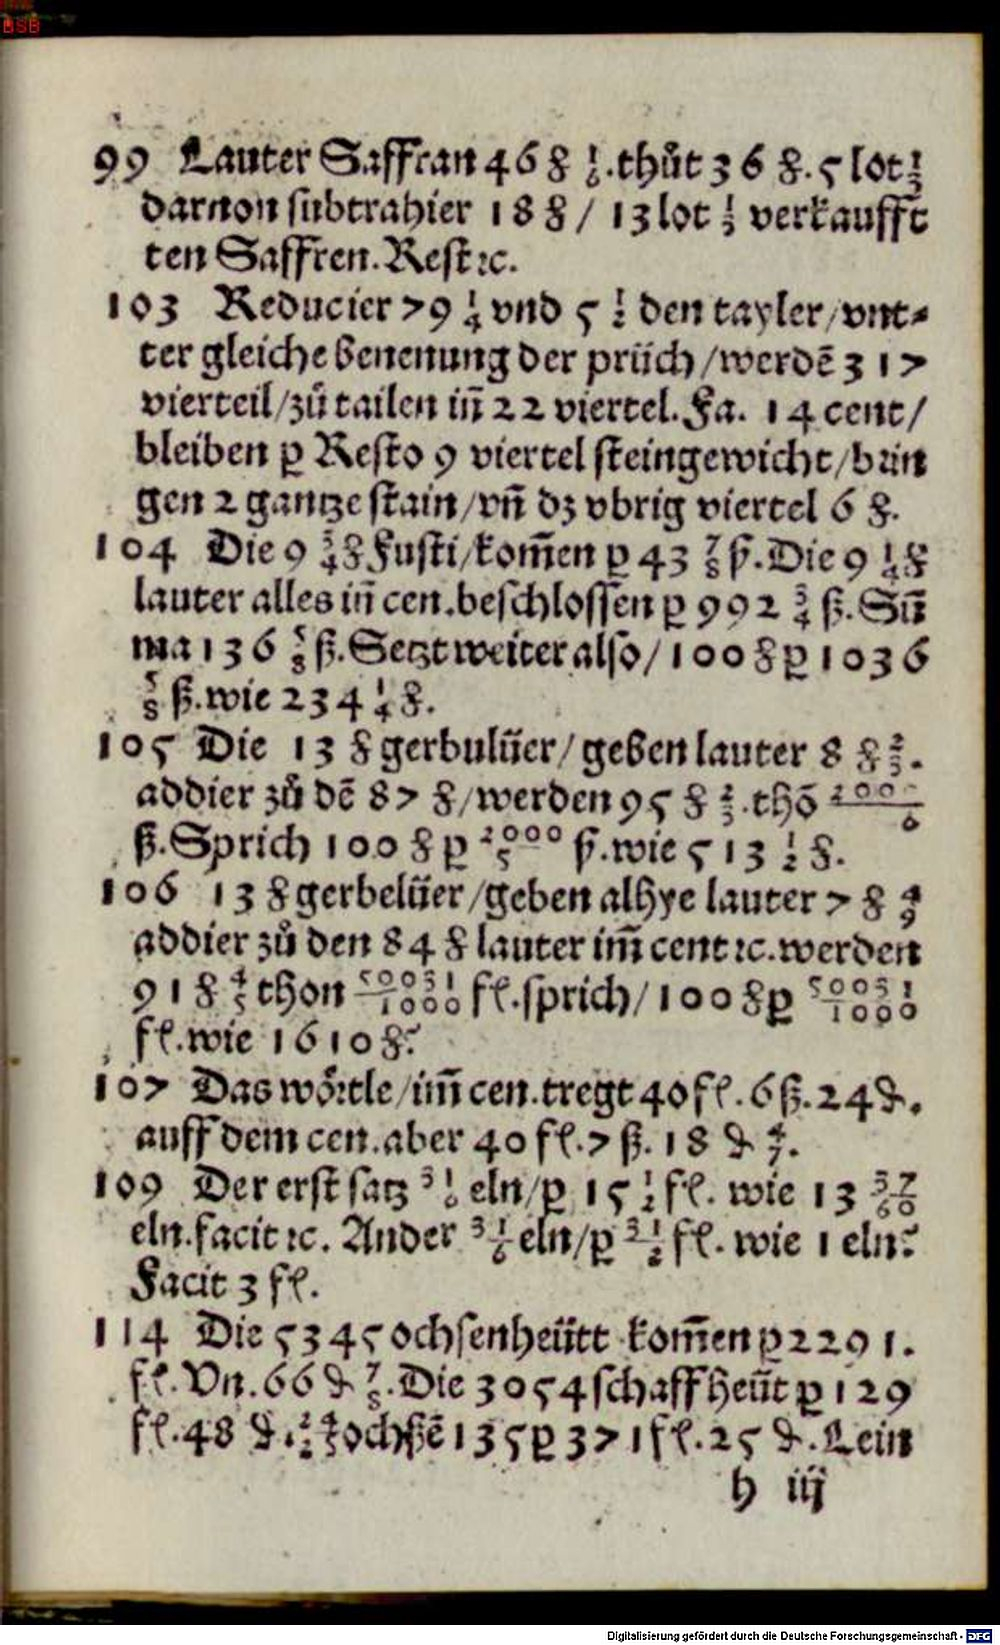 BSB
99 Lauter Saffran 46 8 1/6. thůt 36 8. 5 lot 1/3
darnon subtrahier 18 8 / 13 lot 1/3 verkaufft
ten Saffren. Rest ꝛc.
103 Reducier 79 1/4 vnd 5 1/2 den tayler / vnt⸗
ter gleiche benenung der prüch / werdē 317
vierteil / zů tailen iñ 22 viertel. Fa. 14 cent /
bleiben p Resto 9 viertel steingewicht / brin
gen 2 gantze stain / vñ dz vbrig viertel 6 8.
104 Die 9 3/4 8 Fusti / kom̄en p 43 7/8 ß. Die 9 1/4 8
lauter alles iñ cen. beschlossen p 992 3/4 ß. Sū
ma 136 5/8 ß. Setzt weiter also / 100 8 p 1036
5/8 ß. wie 234 1/4 8.
105 Die 13 8 gerbulüer / geben lauter 8 8 2/3.
addier zů dē 87 8 / werden 95 8 2/3. thō 2000/6
ß. Sprich 100 8 p 2000/5 ß. wie 513 1/2 8.
106 13 8 gerbelüer / geben alhye lauter 7 8 4/9
addier zů den 84 8 lauter im̄ cent ꝛc. werden
91 8 4/5 thon 50031/1000 fl. sprich / 100 8 p 50031/1000
fl. wie 1610 8?
107 Das wörtle / im̄ cen. tregt 40 fl. 6 ß. 24 ₰.
auff dem cen. aber 40 fl. 7 ß. 18 ₰ 4/7.
109 Der erst satz 31/6 eln / p 15 1/2 fl. wie 13 37/60
eln. facit ꝛc. Ander 31/6 eln / p 31/2 fl. wie 1 eln?
Facit 3 fl.
114 Die 5345 ochsenheütt kom̄en p 2291.
fl. Vn. 66 ₰ 7/8. Die 3054 schaff heüt p 129
fl. 48 ₰. ochßē 135 p 371 fl. 25 ₰. Lein
h iij
Digitalisierung gefördert durch die Deutsche Forschungsgemeinschaft - DFG